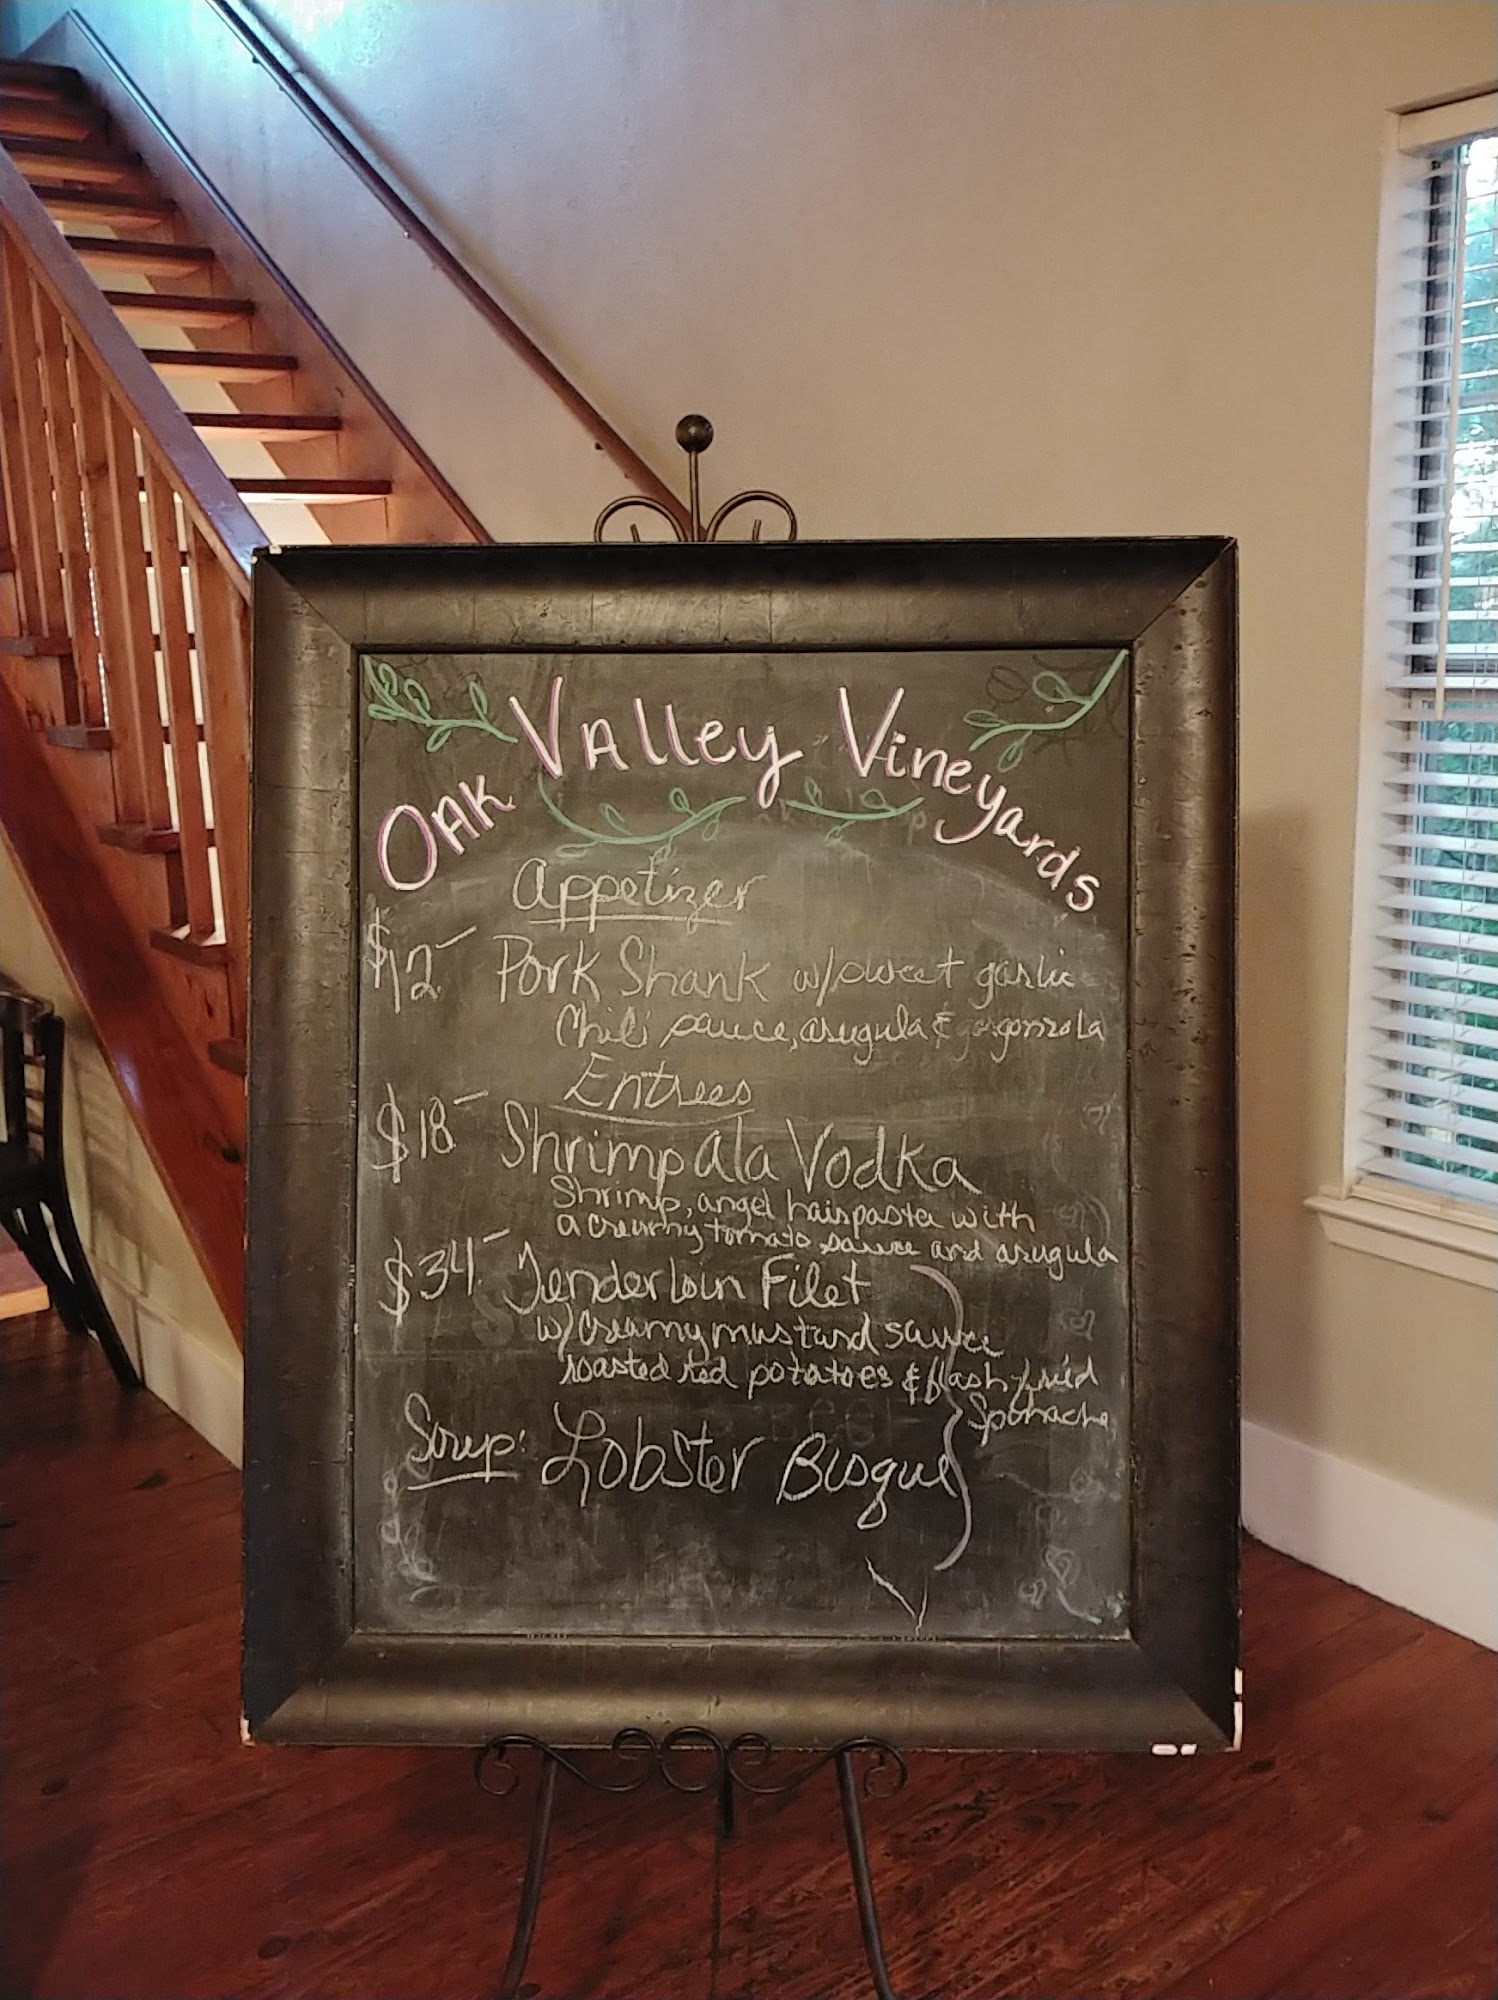 Oak Valley Vineyards
Appetizer
$12- Pork Shank w/sweet garlic
Chili sauce, arugula & gorgonzola
Entrees
$18- Shrimp ala Vodka
Shrimp, angel hair pasta with
a creamy tomato sauce and arugula
$34- Tenderloin Filet
w/ Creamy mustard sauce
roasted red potatoes & flash fried
Spinach
Soup: Lobster Bisque